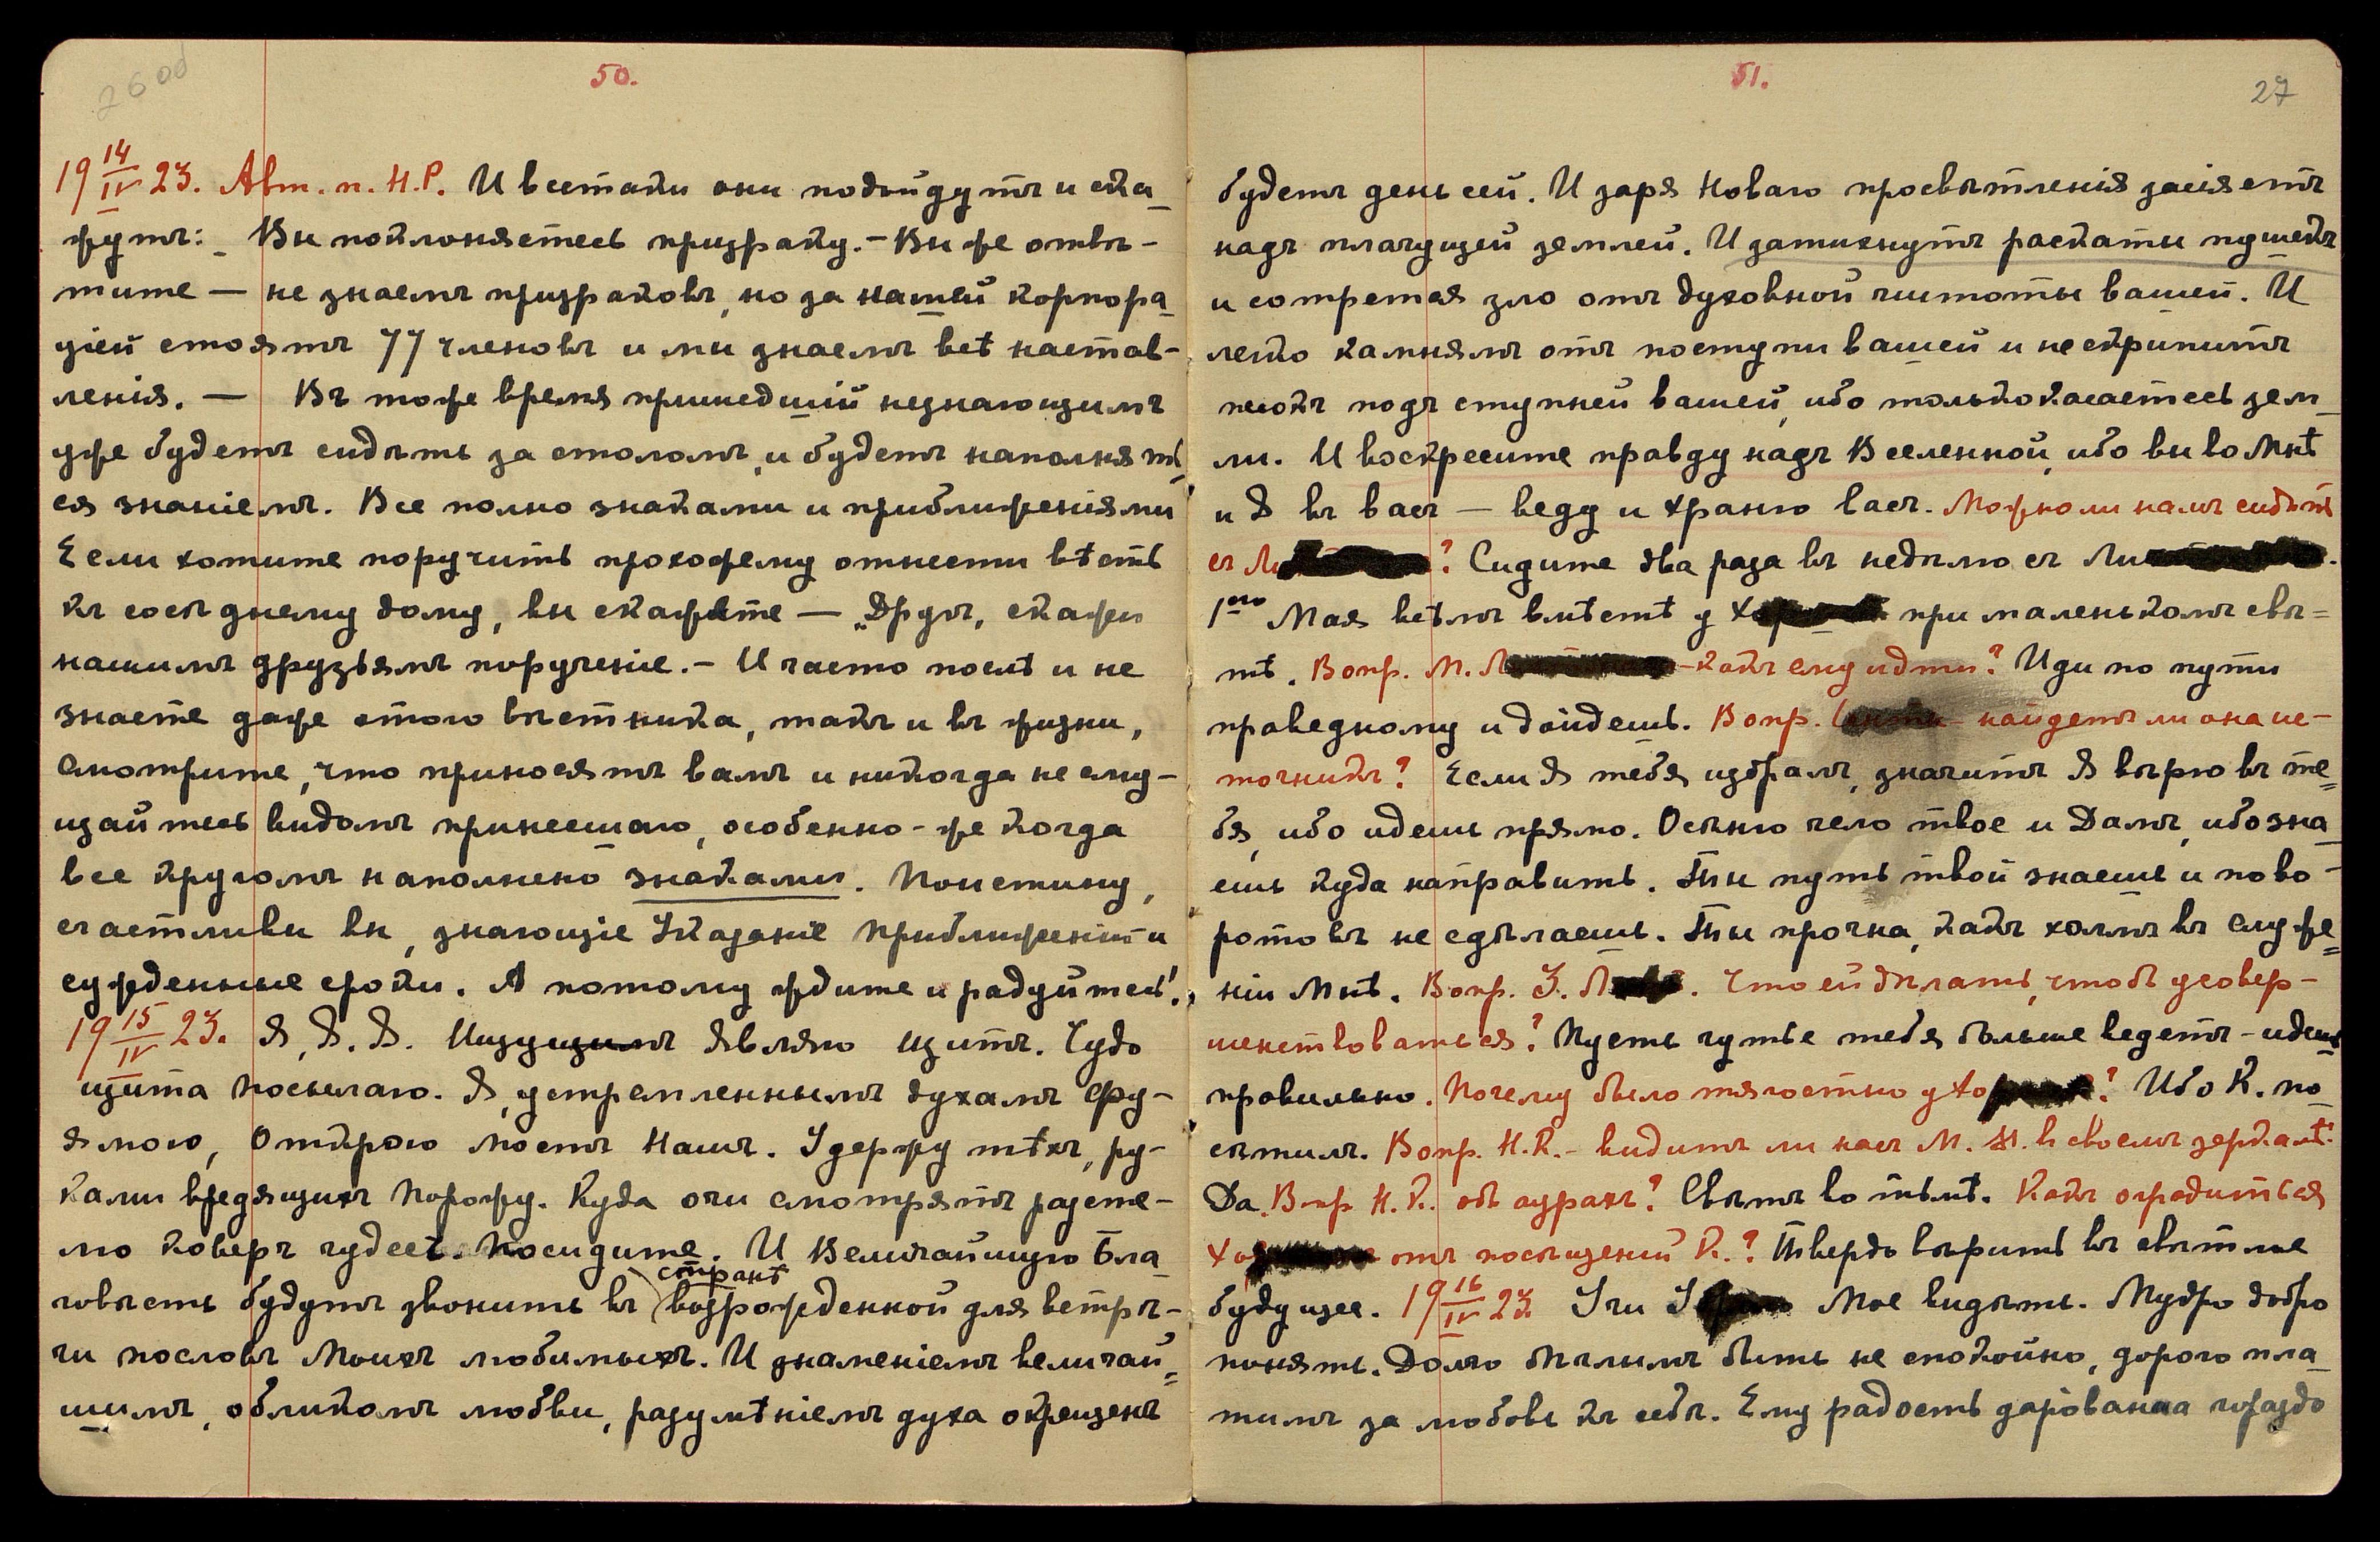 50.
19 14/IV 23. Авт. п. Н.Р. И всетаки они подойдутъ и ска_
жутъ: _ Вы поклоняетесь призраку. – Вы же отвѣ-
тите — не знаемъ призраковъ, но за нашей корпора_
ціей стоятъ 77 членовъ и мы знаемъ всѣ настав-
ленія. — Въ тоже время пришедшій незнающимъ
уже будетъ сидѣть за столомъ, и будетъ наполнять
ся знаніемъ. Все полно знаками и приближеніями
Если хотите поручить прохожему отнести вѣсть
къ сосѣднему дому, вы скажете — „Другъ, скажи
нашимъ друзьямъ порученіе. – И часто послѣ и не
знаете даже этого вѣстника, такъ и въ жизни,
Смотрите, что приносятъ вамъ и никогда не сму-
щайтесь видомъ принесшаго, особенно-же когда
все кругомъ наполнено знаками. Поистину,
счастливы вы, знающіе Указаніе приближеній и
сужденные сроки. А потому ждите и радуйтесь!
19 15/IV 23. Я, Я. Я. Ищущимъ Являю щитъ. Чудо
щита посылаю. Я, устремленнымъ духамъ сру-
ямою, Открою мостъ Нашъ. Удержу тѣхъ, ру-
ками вредящихъ Порожу. Куда очи смотрятъ разсте-
лю коверъ чудесъ. Посидите. И Величайшую Бла_
странѣ
говѣсть будутъ звонить въ возрожденной для встрѣ-
чи пословъ Моихъ любимыхъ. И знаменіемъ величай=
шимъ, обликомъ любви, разумѣніемъ духа окрещенъ
51.
27
будетъ день сей. И заря Новаго просвѣтленія засіяетъ
надъ плачущей землей. И затихнутъ раскаты пушекъ
и сотрется зло отъ духовной чистоты вашей. И
легко камнямъ отъ поступи вашей и не скрипитъ
песокъ подъ ступней вашей, ибо только касаетесь зем_
ли. И воскресите правду надъ Вселенной, ибо вы во Мнѣ
и Я въ васъ — веду и храню васъ. Можно ли намъ сидѣть
съ Ли ? Сидите два раза въ недѣлю съ Ли .
1го Мая всѣмъ вмѣстѣ у Хор при маленькомъ свѣ=
тѣ. Вопр. М. Л – какъ ему идти? Иди по пути
праведному и дойдешь. Вопр. найдетъ ли она ис-
точникъ? Если Я тебя избралъ, значитъ Я вѣрю въ те=
бя, ибо идешь прямо. Осѣню чело твое и Дамъ, ибо зна_
ешь куда направить. Ты путь твой знаешь и пово-
ротовъ не сдѣлаешь. Ты прочна, какъ холмъ въ служе=
ніи Мнѣ. Вопр. З. Л . Что ей дѣлать, чтобъ усовер-
шенствоваться? Пусть чутье тебя больше ведетъ – идешь
правильно. Почему было тягостно у Хор ? Ибо К. по
сѣтилъ. Вопр. Н.К. – видитъ ли насъ М. М. в своемъ зеркалѣ?
Да. Вопр. Н.К. объ аурахъ? Свѣтъ во тьмѣ. Какъ оградиться
Хор отъ посѣщеній К.? Твердо вѣрить въ свѣтлое
будущее. 19 16/IV 23 Учи У Мое видѣть. Мудро добро
понять. Долго бѣлымъ быть не спокойно, дорого пла_
тимъ за любовь къ себѣ. Ему радость дарована гораздо